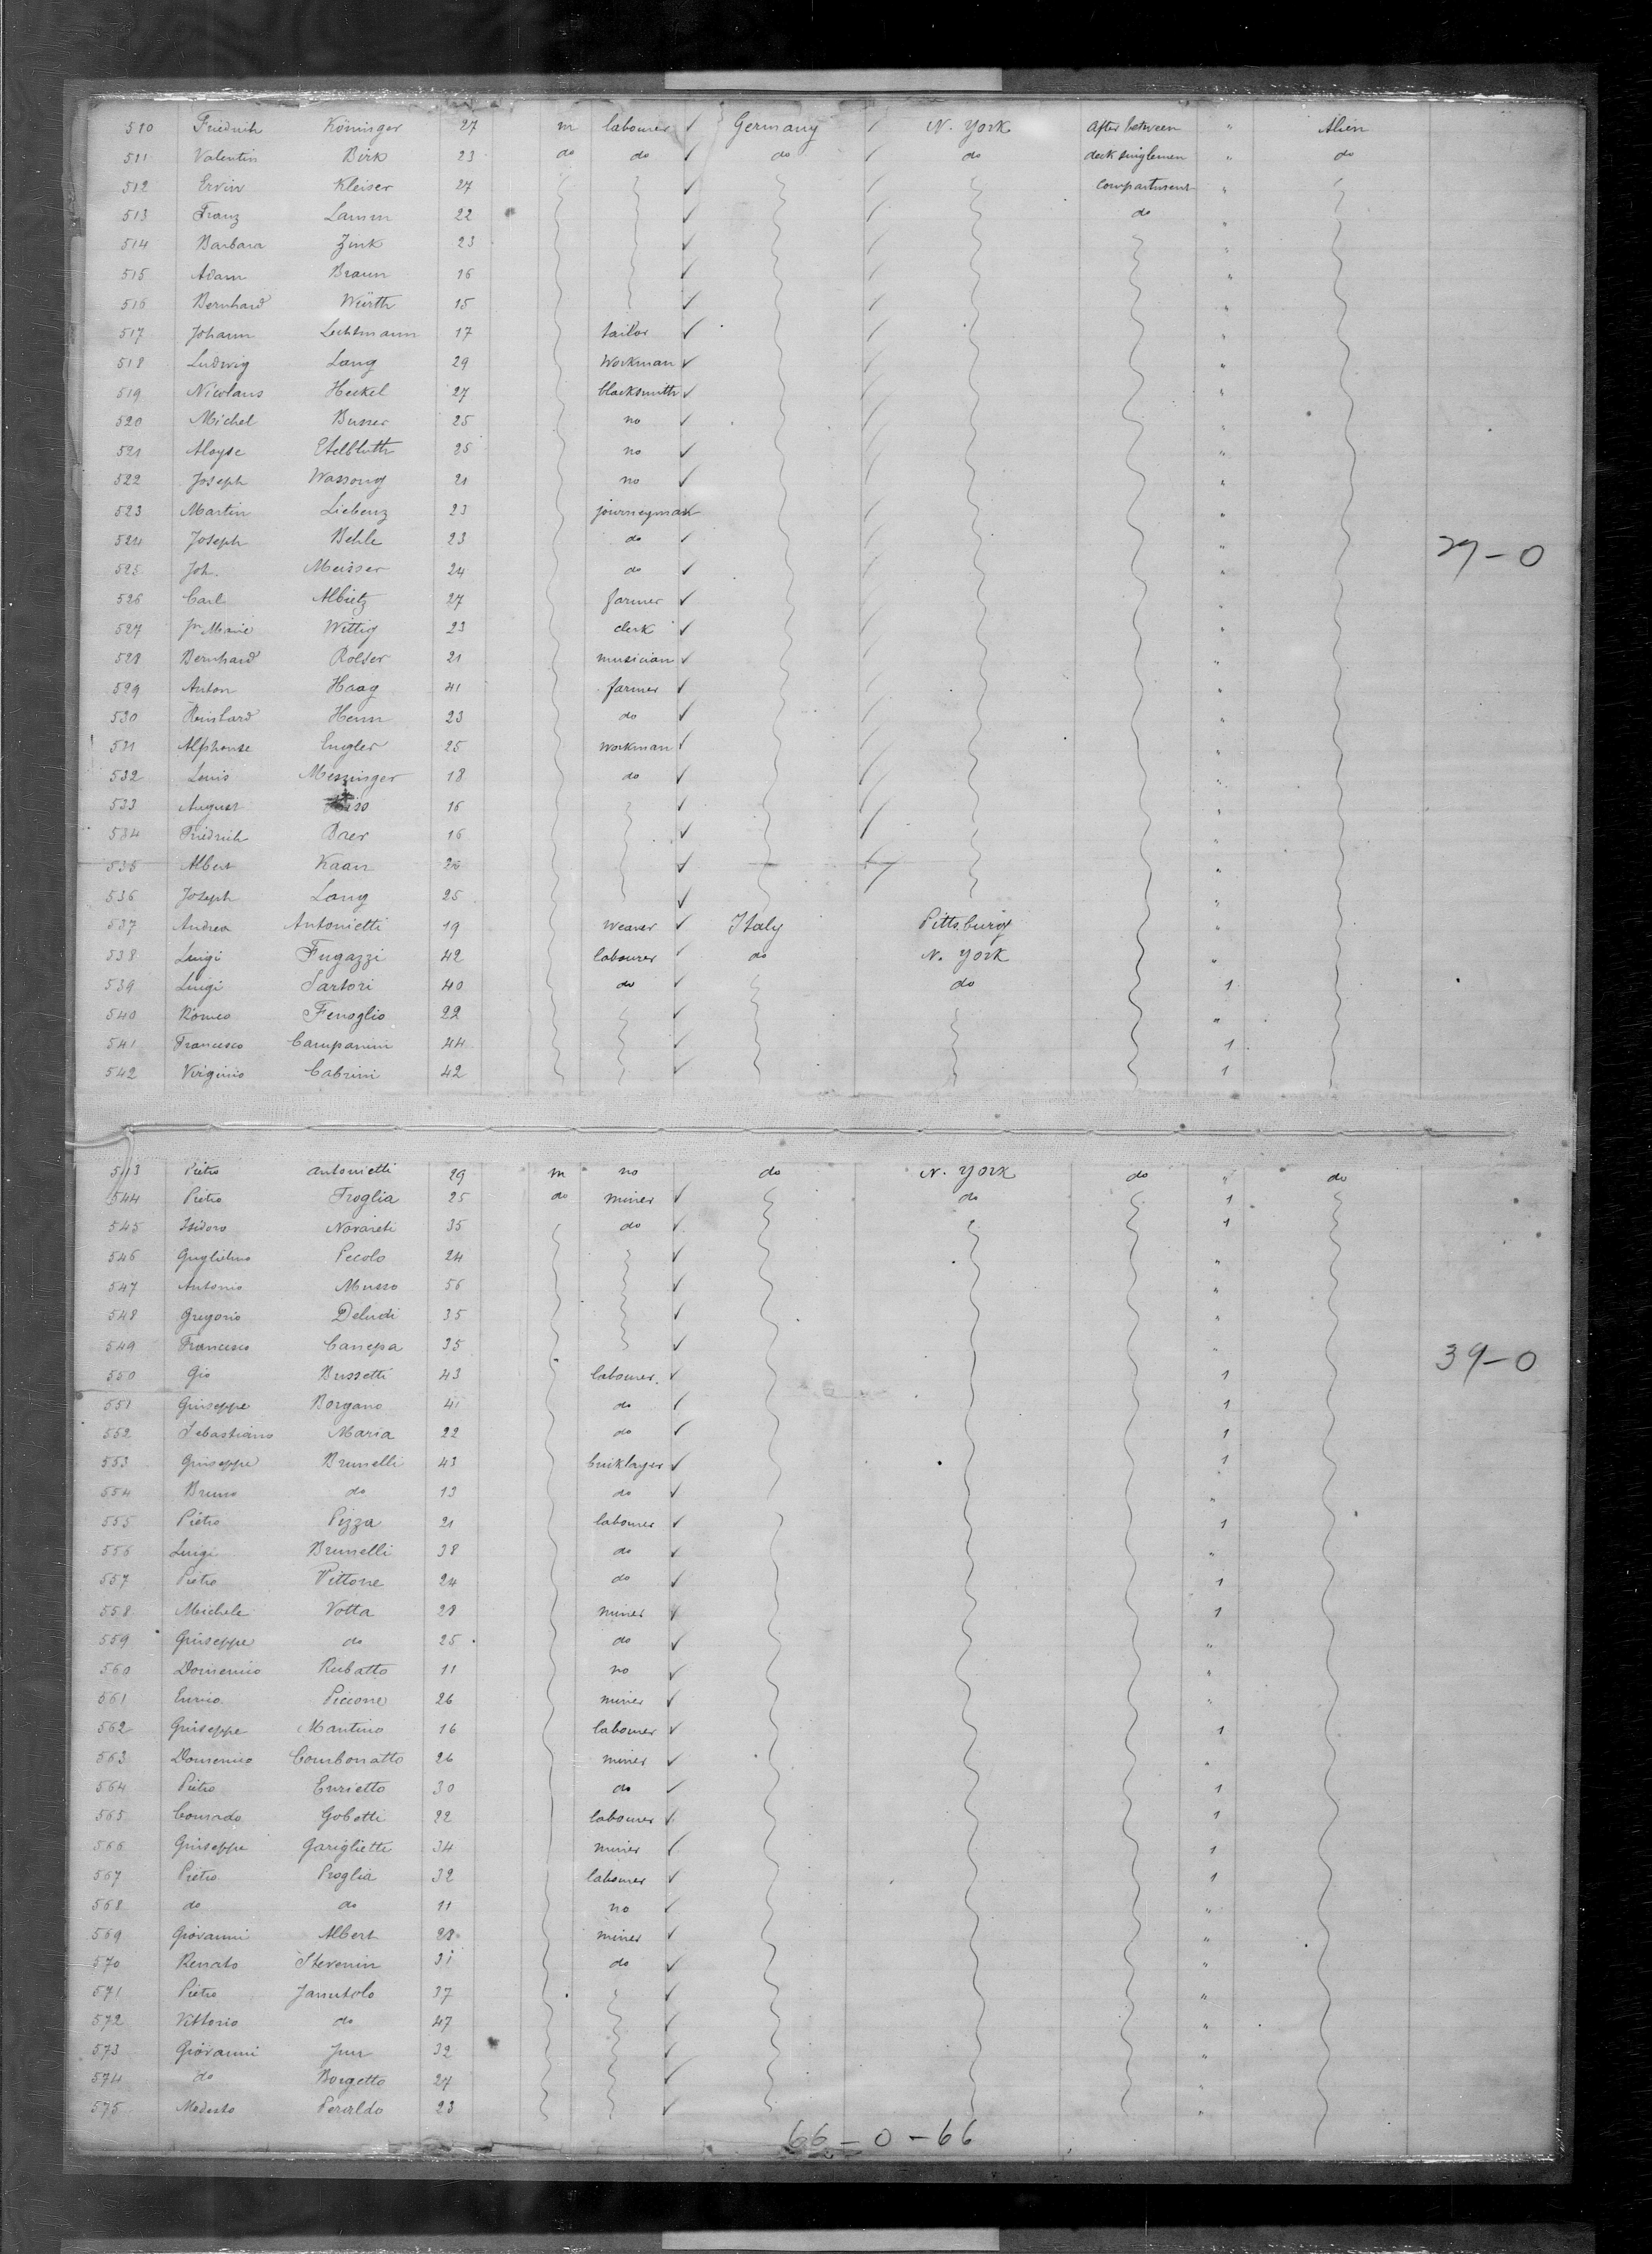 510 Friedrich Köninger 27 m labourer Germany N. York After between " Alien
511 Valentin Birk 23 do do do do deck singlemen " do
512 Ervin Kleiser 27 compartment "
513 Franz Lamm 22 do "
514 Barbara Zink 23 "
515 Adam Braun 16 "
516 Bernhard Würth 15 "
517 Johann Lechtmann 17 tailor "
518 Ludwig Lang 29 workman "
519 Nicolaus Heckel 27 blacksmith "
520 Michel Busser 25 no "
521 Aloyse Etelbluth 25 no "
522 Joseph Wassong 21 no "
523 Martin Liebenz 23 journeyman "
524 Joseph Behle 23 do "
27-0
525 Joh. Meisser 24 do "
526 Carl Albietz 27 farmer "
527 Jn Marie Wittig 23 clerk "
528 Bernhard Rolser 21 musician "
529 Anton Haag 41 farmer "
530 Reinhard Henn 23 do "
531 Alphonse Engler 25 workman "
532 Louis Messinger 18 do "
533 August 16 "
534 Friedrich Baer 16 "
535 Albert Kaan "
536 Joseph Lang 25 "
537 Andrea Antonietti 19 weaver Italy Pittsburg "
538 Luigi Fugazzi 42 labourer do N. York "
539 Luigi Sartori 40 do do 1
540 Romeo Fenoglio 22 "
541 Francesco Campanini 44 1
542 Virginio Cabrini 42 1
543 Pietro Antonietti 29 m no do N. York do " do
544 Pietro Troglia 25 do miner do 1
545 Isidoro Novareti 35 do 1
546 Guglielmo Pecolo 24 "
547 Antonio Musso 56 "
548 Gregorio Deludi 35 "
549 Francesco Canepa 35 "
39-0
550 Gio Bussetti 43 labourer 1
551 Giuseppe Borgano 41 do 1
552 Sebastiano Maria 22 do 1
553 Giuseppe Brunelli 43 bricklayer 1
554 Bruno do 13 do "
555 Pietro Pizza 21 labourer 1
556 Luigi Brunelli 38 do "
557 Pietro Vittone 24 do 1
558 Michele Votta 28 miner 1
559 Giuseppe do 25 do "
560 Domenico Rubatto 11 no "
561 Enrico Piccone 26 miner "
562 Giuseppe Mantino 16 labourer 1
563 Domenico Combonatto 26 miner "
564 Pietro Enrietto 30 do 1
565 Conrado Gobetti 22 labourer 1
566 Giuseppe Gariglietti 34 miner 1
567 Pietro Proglia 32 labourer 1
568 do do 11 no "
569 Giovanni Albert 28 miner "
570 Renato Stevenin 31 do "
571 Pietro Janutolo 37 "
572 Vittorio do 47 "
573 Giovanni Jun 32 "
574 do Borgetto 27 "
575 Modesto Peraldo 23 "
66-0-66